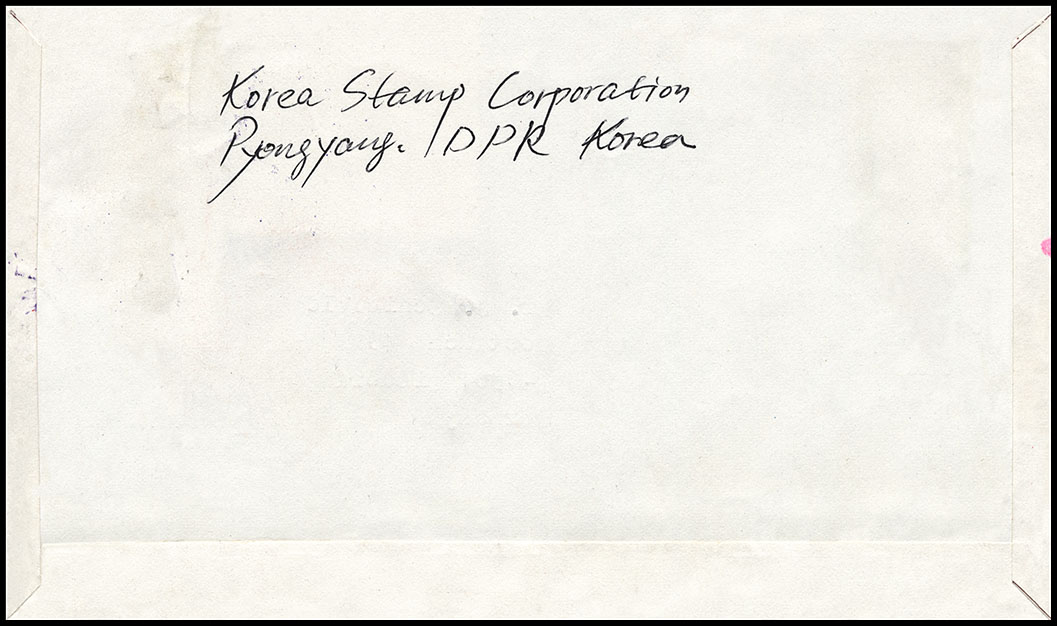 Korea Stamp Corporation
Pyongyang. DPR Korea